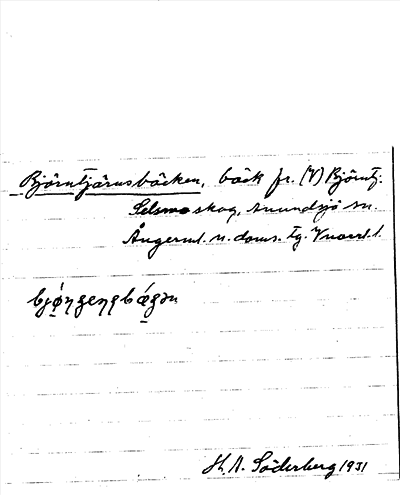 Björntjärnsbäcken, bäck fr. (V) Björntj.
Selsmo skog, Anundsjö sn.
Ångerml. n. doms. tg. Vnorrl. l.
H. A. Söderberg 1931